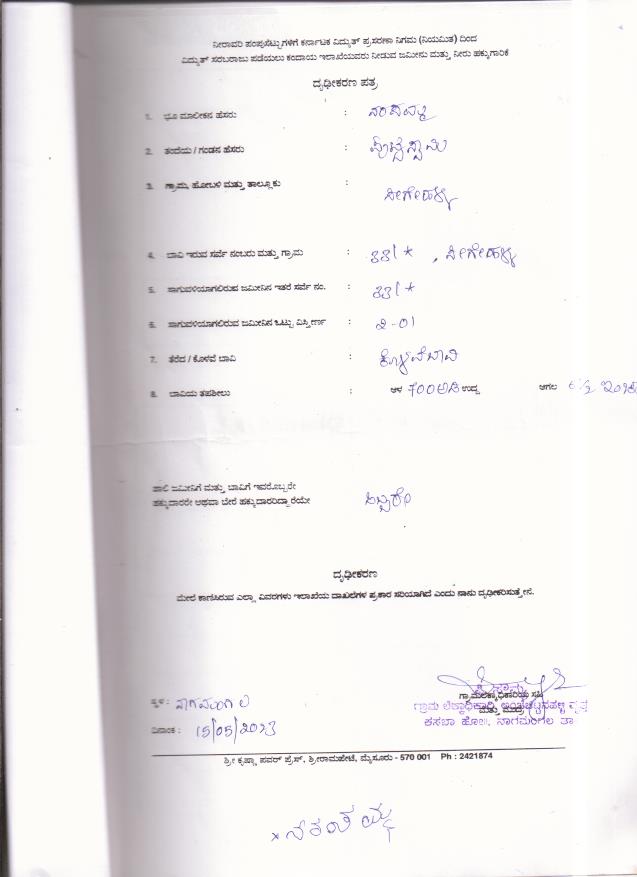 ನೀರಾವರಿ ಪಂಪುಸೆಟ್ಟುಗಳಿಗೆ ಕರ್ನಾಟಕ ವಿದ್ಯುತ್ ಪ್ರಸರಣಾ ನಿಗಮ (ನಿಯಮಿತ) ದಿಂದ
ವಿದ್ಯುತ್ ಸರಬರಾಜು ಪಡೆಯಲು ಕಂದಾಯ ಇಲಾಖೆಯವರು ನೀಡುವ ಜಮೀನು ಮತ್ತು ನೀರು ಹಕ್ಕುಗಾರಿಕೆ
ದೃಢೀಕರಣ ಪತ್ರ
1. ಭೂ ಮಾಲೀಕನ ಹೆಸರು :
2. ತಂದೆಯ / ಗಂಡನ ಹೆಸರು :
3. ಗ್ರಾಮ, ಹೋಬಳಿ ಮತ್ತು ತಾಲ್ಲೂಕು : ಸೀಗೇಹಳ್ಳಿ
4. ಬಾವಿ ಇರುವ ಸರ್ವೆ ನಂಬರು ಮತ್ತು ಗ್ರಾಮ : 33/* , ಸೀಗೇಹಳ್ಳಿ
5. ಸಾಗುವಳಿಯಾಗಲಿರುವ ಜಮೀನಿನ ಇತರೆ ಸರ್ವೆ ನಂ. : 33/*
6. ಸಾಗುವಳಿಯಾಗಲಿರುವ ಜಮೀನಿನ ಒಟ್ಟು ವಿಸ್ತೀರ್ಣ : 2-01
7. ತೆರೆದ / ಕೊಳವೆ ಬಾವಿ : ಕೊಳವೆಬಾವಿ
8. ಬಾವಿಯ ತಪಶೀಲು : ಆಳ 700 ಅಡಿ ಉದ್ದ ಅಗಲ 6 1/2 ಇಂಚು
ಖಾಲಿ ಜಮೀನಿಗೆ ಮತ್ತು ಬಾವಿಗೆ ಇವರೊಬ್ಬರೇ
ಹಕ್ಕುದಾರರೇ ಅಥವಾ ಬೇರೆ ಹಕ್ಕುದಾರರಿದ್ದಾರೆಯೇ ಒಬ್ಬರೇ
ದೃಢೀಕರಣ
ಮೇಲೆ ಕಾಣಿಸಿರುವ ಎಲ್ಲಾ ವಿವರಗಳು ಇಲಾಖೆಯ ದಾಖಲೆಗಳ ಪ್ರಕಾರ ಸರಿಯಾಗಿದೆ ಎಂದು ನಾನು ದೃಢೀಕರಿಸುತ್ತೇನೆ.
ಸ್ಥಳ : ನಾಗಮಂಗಲ
ಗ್ರಾಮಲೆಕ್ಕಾಧಿಕಾರಿಯ ಸಹಿ
ಮತ್ತು ಮುದ್ರೆ
ಗ್ರಾಮ ಲೆಕ್ಕಾಧಿಕಾರಿ, ಅಂಚೆಚಿಟ್ಟನಹಳ್ಳಿ ವೃತ್ತ
ಕಸಬಾ ಹೋಬಳಿ, ನಾಗಮಂಗಲ ತಾ
ದಿನಾಂಕ : 15/05/2023
ಶ್ರೀ ಕೃಷ್ಣಾ ಪವರ್ ಪ್ರೆಸ್, ಶ್ರೀರಾಮಪೇಟೆ, ಮೈಸೂರು - 570 001 Ph : 2421874